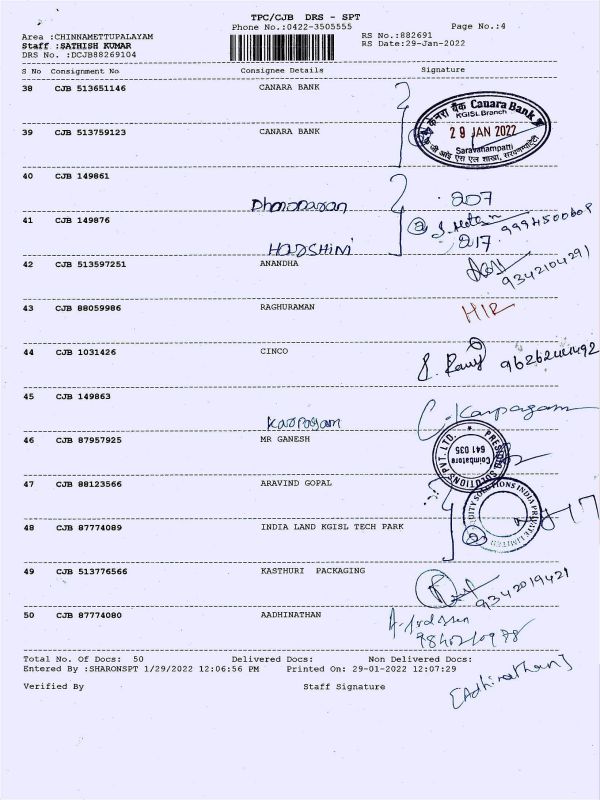 TPC/CJB DRS - SPT
Phone No.:0422-3505555
Page No.:4
Area :CHINNAMETTUPALAYAM
RS No.:882691
Staff :SATHISH KUMAR
RS Date:29-Jan-2022
DRS No. :DCJB88269104
S No Consignment No Consignee Details Signature
38 CJB 513651146 CANARA BANK
केनरा बैंक Canara Bank
KGISL Branch
29 JAN 2022
Saravanampatti
39 CJB 513759123 CANARA BANK
40 CJB 149861
207
41 CJB 149876
9994500608
217
HARSHINI
42 CJB 513597251 ANANDHA
9342104291
43 CJB 88059986 RAGHURAMAN
44 CJB 1031426 CINCO
45 CJB 149863
Karpagam
C. Karpagam
46 CJB 87957925 MR GANESH
Coimbatore
641 035
SOLUTIONS PVT. LTD.
47 CJB 88123566 ARAVIND GOPAL
48 CJB 87774089 INDIA LAND KGISL TECH PARK
49 CJB 513776566 KASTHURI PACKAGING
9342019421
50 CJB 87774080 AADHINATHAN
Total No. Of Docs: 50 Delivered Docs: Non Delivered Docs:
Entered By :SHARONSPT 1/29/2022 12:06:56 PM Printed On: 29-01-2022 12:07:29
[Adhinathan]
Verified By Staff Signature